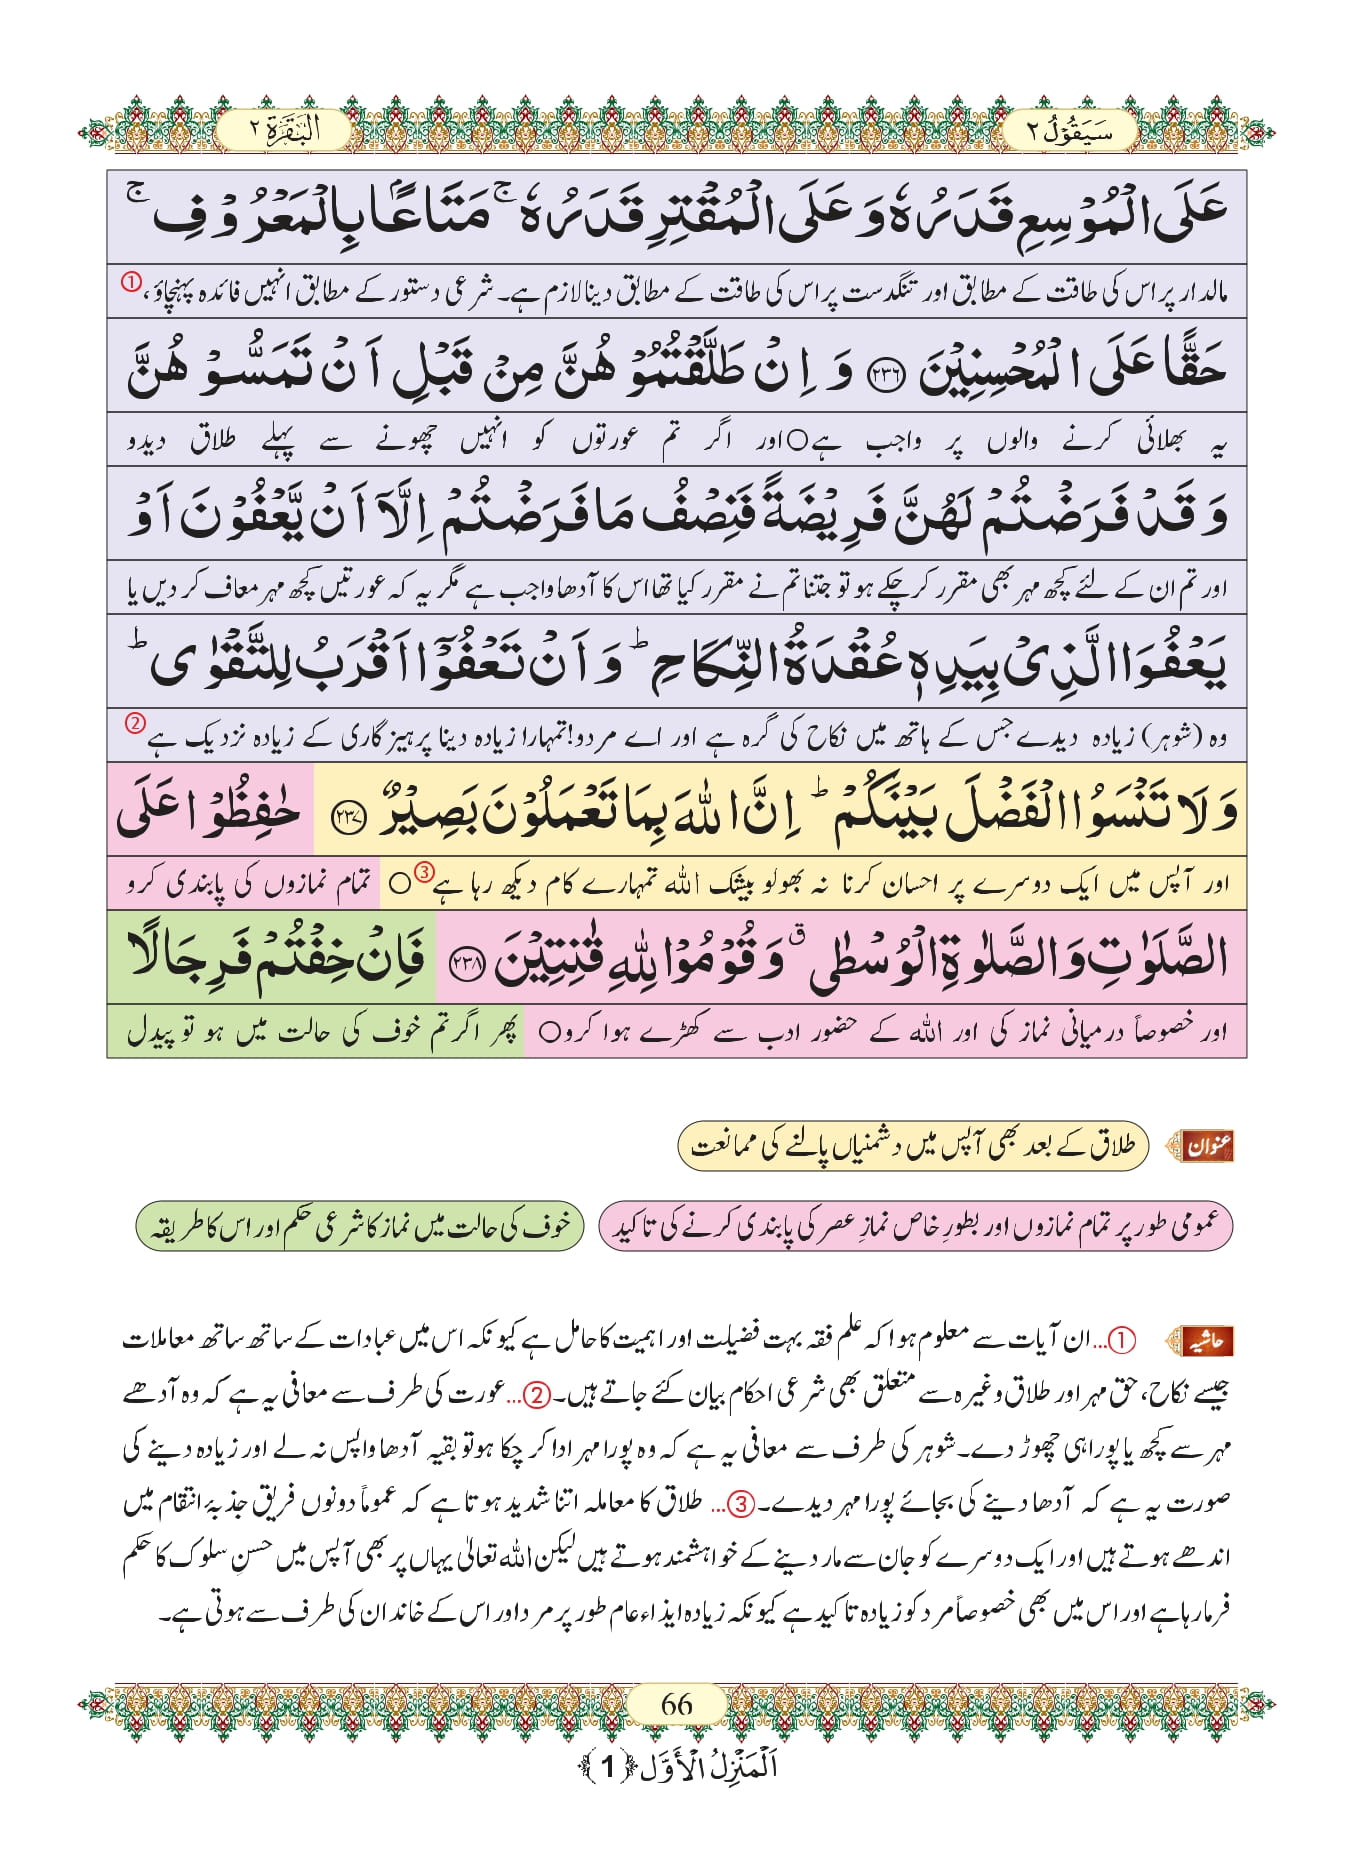 سَيَقُوْلُ ٢
البَقَرَة ٢
عَلَى الْمُوْسِعِ قَدَرُهٗ وَ عَلَى الْمُقْتِرِ قَدَرُهٗ ۚ مَتَاعًۢا بِالْمَعْرُوْفِ ۚ
مالدار پر اس کی طاقت کے مطابق اور تنگدست پر اس کی طاقت کے مطابق دینا لازم ہے۔ شرعی دستور کے مطابق انہیں فائدہ پہنچاؤ، ①
حَقًّا عَلَى الْمُحْسِنِیْنَ ﴿۲۳۶﴾ وَ اِنْ طَلَّقْتُمُوْ هُنَّ مِنْ قَبْلِ اَنْ تَمَسُّوْ هُنَّ
یہ بھلائی کرنے والوں پر واجب ہے○ اور اگر تم عورتوں کو انہیں چھونے سے پہلے طلاق دیدو
وَ قَدْ فَرَضْتُمْ لَهُنَّ فَرِیْضَةً فَنِصْفُ مَا فَرَضْتُمْ اِلَّاۤ اَنْ یَّعْفُوْنَ اَوْ
اور تم ان کے لئے کچھ مہر بھی مقرر کر چکے ہو تو جتنا تم نے مقرر کیا تھا اس کا آدھا واجب ہے مگر یہ کہ عورتیں کچھ مہر معاف کر دیں یا
یَعْفُوَا الَّذِیْ بِیَدِهٖ عُقْدَةُ النِّكَاحِ ؕ وَ اَنْ تَعْفُوْۤا اَقْرَبُ لِلتَّقْوٰى ؕ
وہ (شوہر) زیادہ دیدے جس کے ہاتھ میں نکاح کی گرہ ہے اور اے مردو! تمہارا زیادہ دینا پرہیزگاری کے زیادہ نزدیک ہے ②
وَ لَا تَنْسَوُا الْفَضْلَ بَیْنَكُمْ ؕ اِنَّ اللّٰهَ بِمَا تَعْمَلُوْنَ بَصِیْرٌ ﴿۲۳۷﴾ حٰفِظُوْا عَلَى
اور آپس میں ایک دوسرے پر احسان کرنا نہ بھولو بیشک اللہ تمہارے کام دیکھ رہا ہے ③ ○ تمام نمازوں کی پابندی کرو
الصَّلَوٰتِ وَ الصَّلٰوةِ الْوُسْطٰى ۗ وَ قُوْمُوْا لِلّٰهِ قٰنِتِیْنَ ﴿۲۳۸﴾ فَاِنْ خِفْتُمْ فَرِجَالًا
اور خصوصاً درمیانی نماز کی اور اللہ کے حضور ادب سے کھڑے ہوا کرو○ پھر اگر تم خوف کی حالت میں ہو تو پیدل
عنوان طلاق کے بعد بھی آپس میں دشمنیاں پالنے کی ممانعت
عمومی طور پر تمام نمازوں اور بطورِ خاص نمازِ عصر کی پابندی کرنے کی تاکید خوف کی حالت میں نماز کا شرعی حکم اور اس کا طریقہ
حاشیہ ①... ان آیات سے معلوم ہوا کہ علم فقہ بہت فضیلت اور اہمیت کا حامل ہے کیونکہ اس میں عبادات کے ساتھ ساتھ معاملات
جیسے نکاح، حق مہر اور طلاق وغیرہ سے متعلق بھی شرعی احکام بیان کئے جاتے ہیں۔ ②... عورت کی طرف سے معافی یہ ہے کہ وہ آدھے
مہر سے کچھ یا پورا ہی چھوڑ دے۔ شوہر کی طرف سے معافی یہ ہے کہ وہ پورا مہر ادا کر چکا ہو تو بقیہ آدھا واپس نہ لے اور زیادہ دینے کی
صورت یہ ہے کہ آدھا دینے کی بجائے پورا مہر دیدے۔ ③... طلاق کا معاملہ اتنا شدید ہوتا ہے کہ عموماً دونوں فریق جذبۂ انتقام میں
اندھے ہوتے ہیں اور ایک دوسرے کو جان سے مار دینے کے خواہشمند ہوتے ہیں لیکن اللہ تعالیٰ یہاں پر بھی آپس میں حسنِ سلوک کا حکم
فرما رہا ہے اور اس میں بھی خصوصاً مرد کو زیادہ تاکید ہے کیونکہ زیادہ ایذاء عام طور پر مرد اور اس کے خاندان کی طرف سے ہوتی ہے۔
66
اَلْمَنْزِلُ الْاَوَّل ﴿1﴾